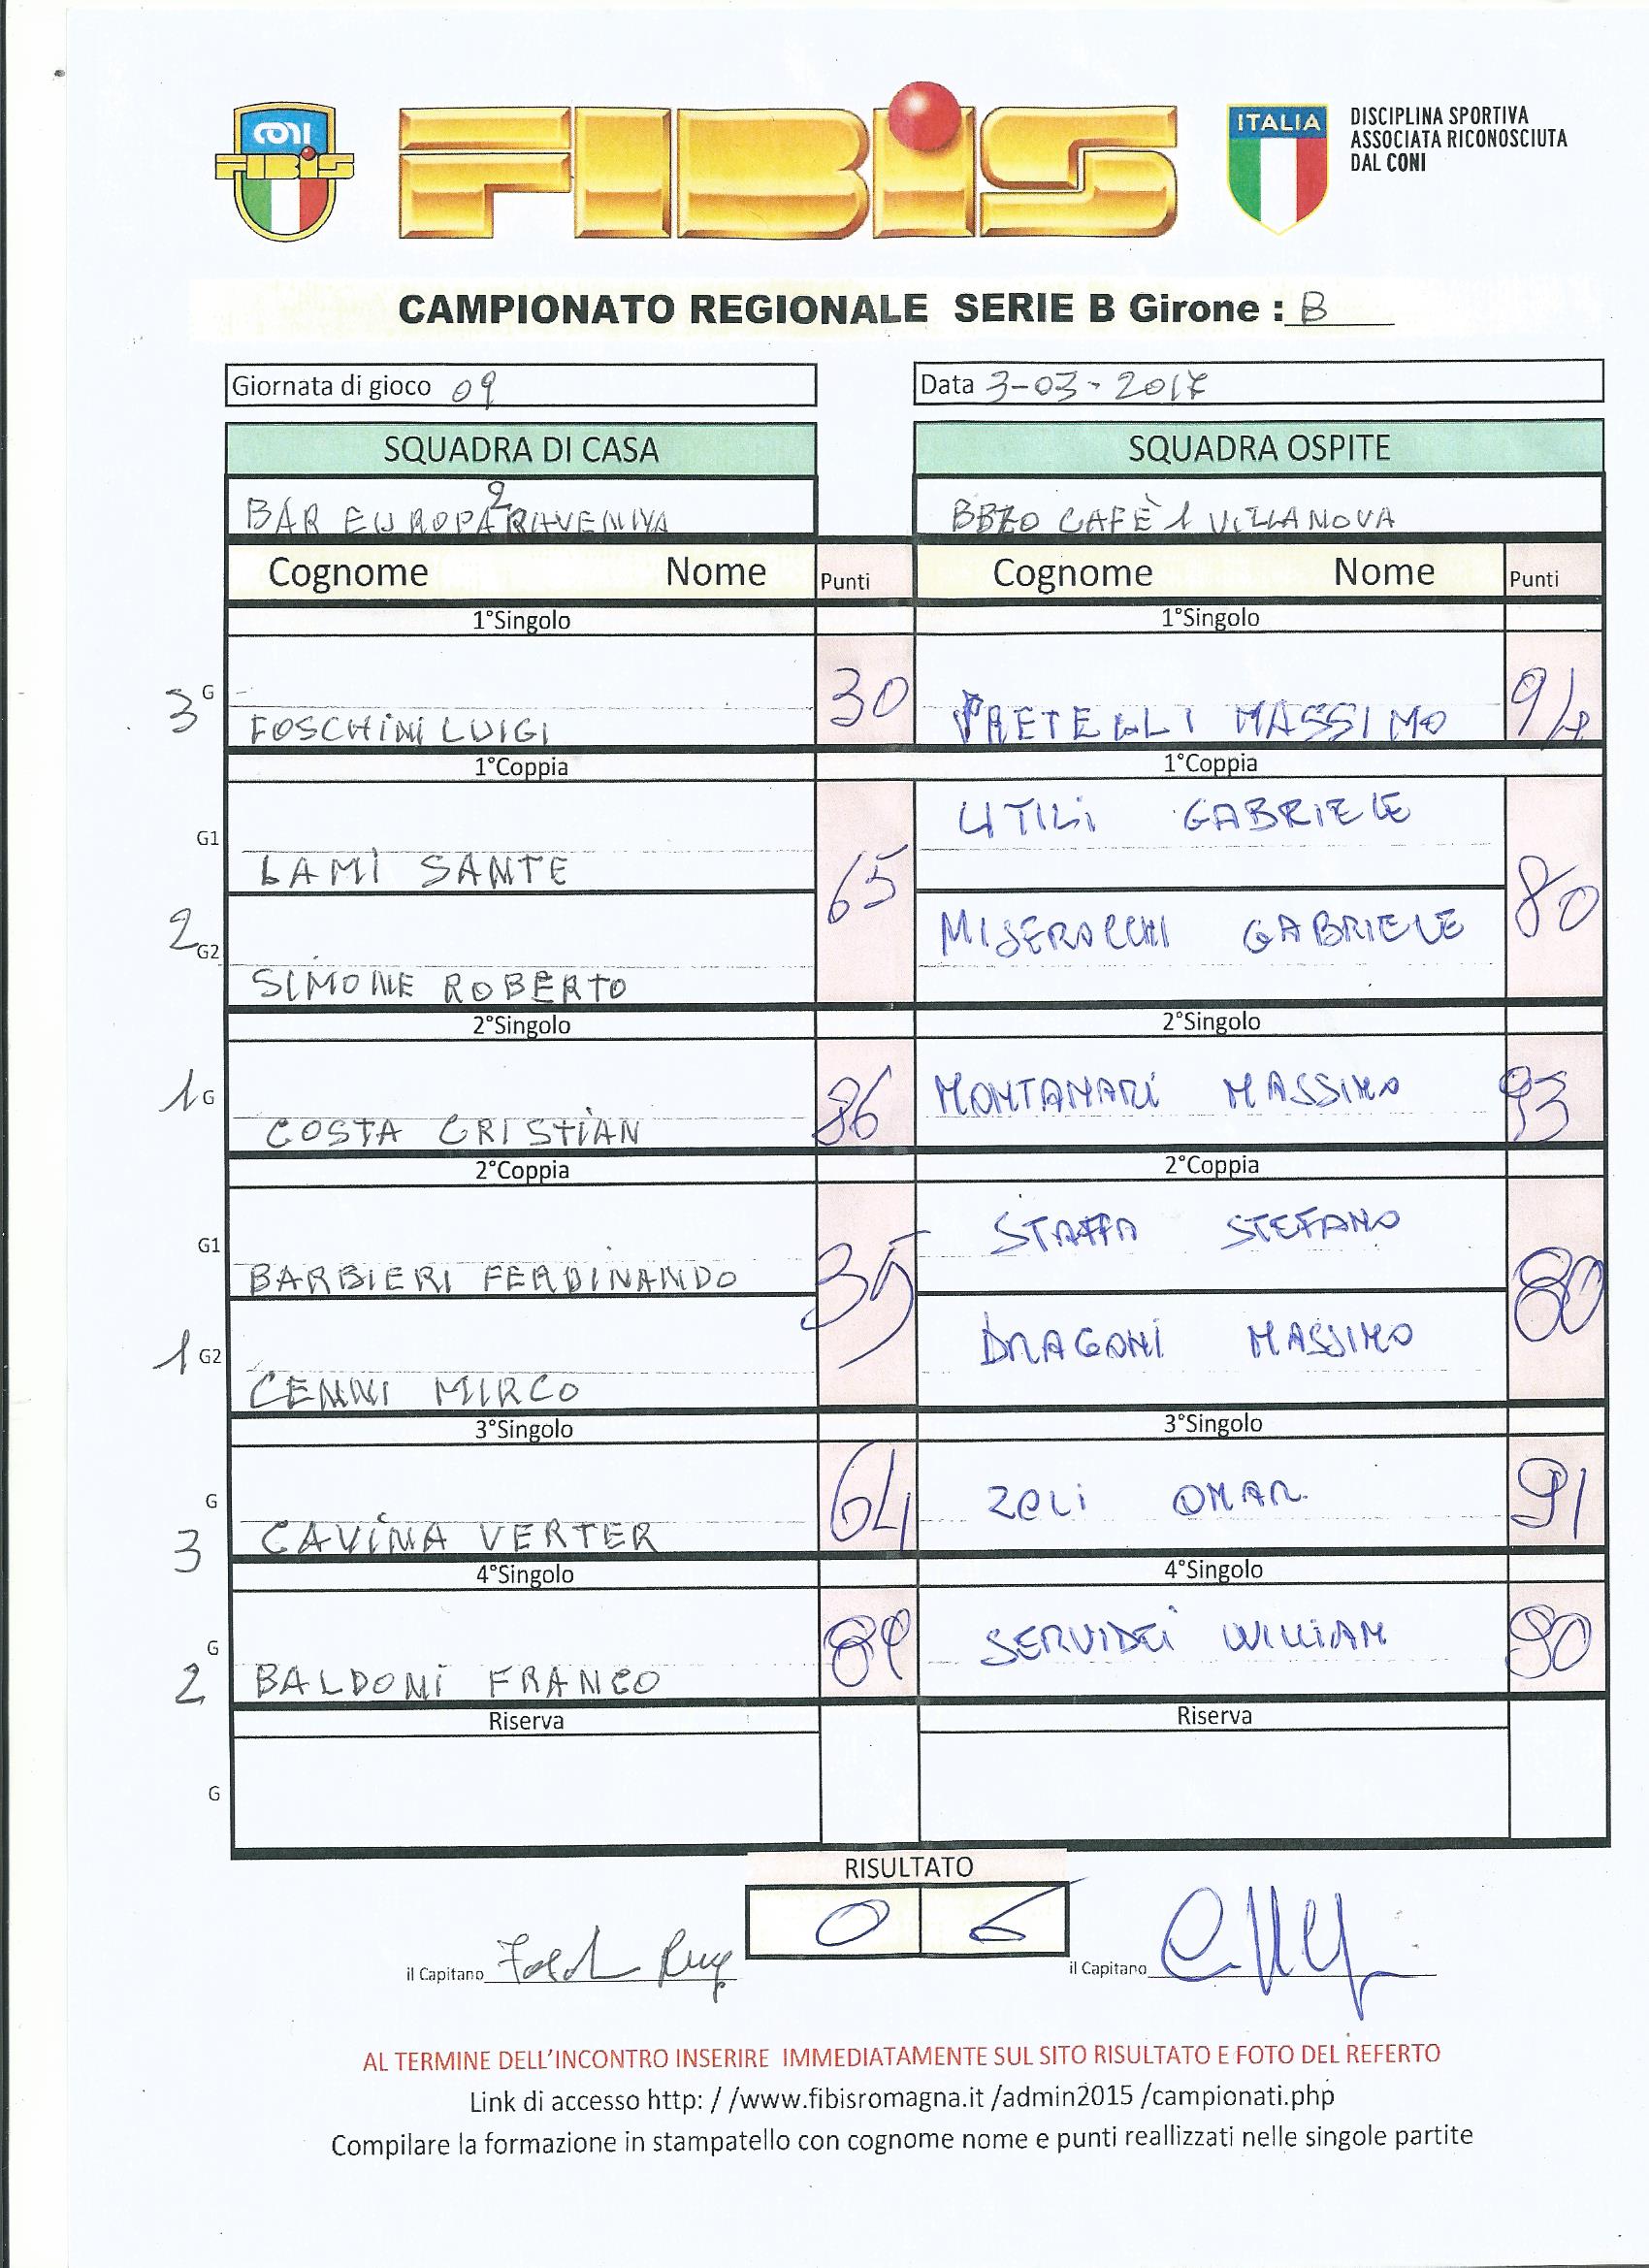 CONI
FIBIS
FIBIS
ITALIA
DISCIPLINA SPORTIVA
ASSOCIATA RICONOSCIUTA
DAL CONI
CAMPIONATO REGIONALE SERIE B Girone : B
Giornata di gioco 09 Data 3-03-2017
SQUADRA DI CASA SQUADRA OSPITE
BAR EUROPA 2 RAVENNA CAFÈ 1 VILLANOVA
Cognome Nome Punti Cognome Nome Punti
1°Singolo 1°Singolo
3 G FOSCHINI LUIGI 30 PRETELLI MASSIMO 94
1°Coppia 1°Coppia
G1 LAMI SANTE 65 UTILI GABRIELE 80
2 G2 SIMONE ROBERTO MISEROCCHI GABRIELE
2°Singolo 2°Singolo
1 G COSTA CRISTIAN 86 MONTANARI MASSIMO 93
2°Coppia 2°Coppia
G1 BARBIERI FERDINANDO 35 STAFFA STEFANO 80
1 G2 CENNI MIRCO DRAGONI MASSIMO
3°Singolo 3°Singolo
G 3 CAVINA VERTER 64 ZOLI OMAR 91
4°Singolo 4°Singolo
G 2 BALDONI FRANCO SERVIDEI WILLIAM 90
Riserva Riserva
G
RISULTATO
0 6
il Capitano il Capitano
AL TERMINE DELL'INCONTRO INSERIRE IMMEDIATAMENTE SUL SITO RISULTATO E FOTO DEL REFERTO
Link di accesso http: / /www.fibisromagna.it /admin2015 /campionati.php
Compilare la formazione in stampatello con cognome nome e punti reallizzati nelle singole partite